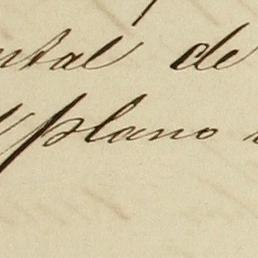 ntal de
plano